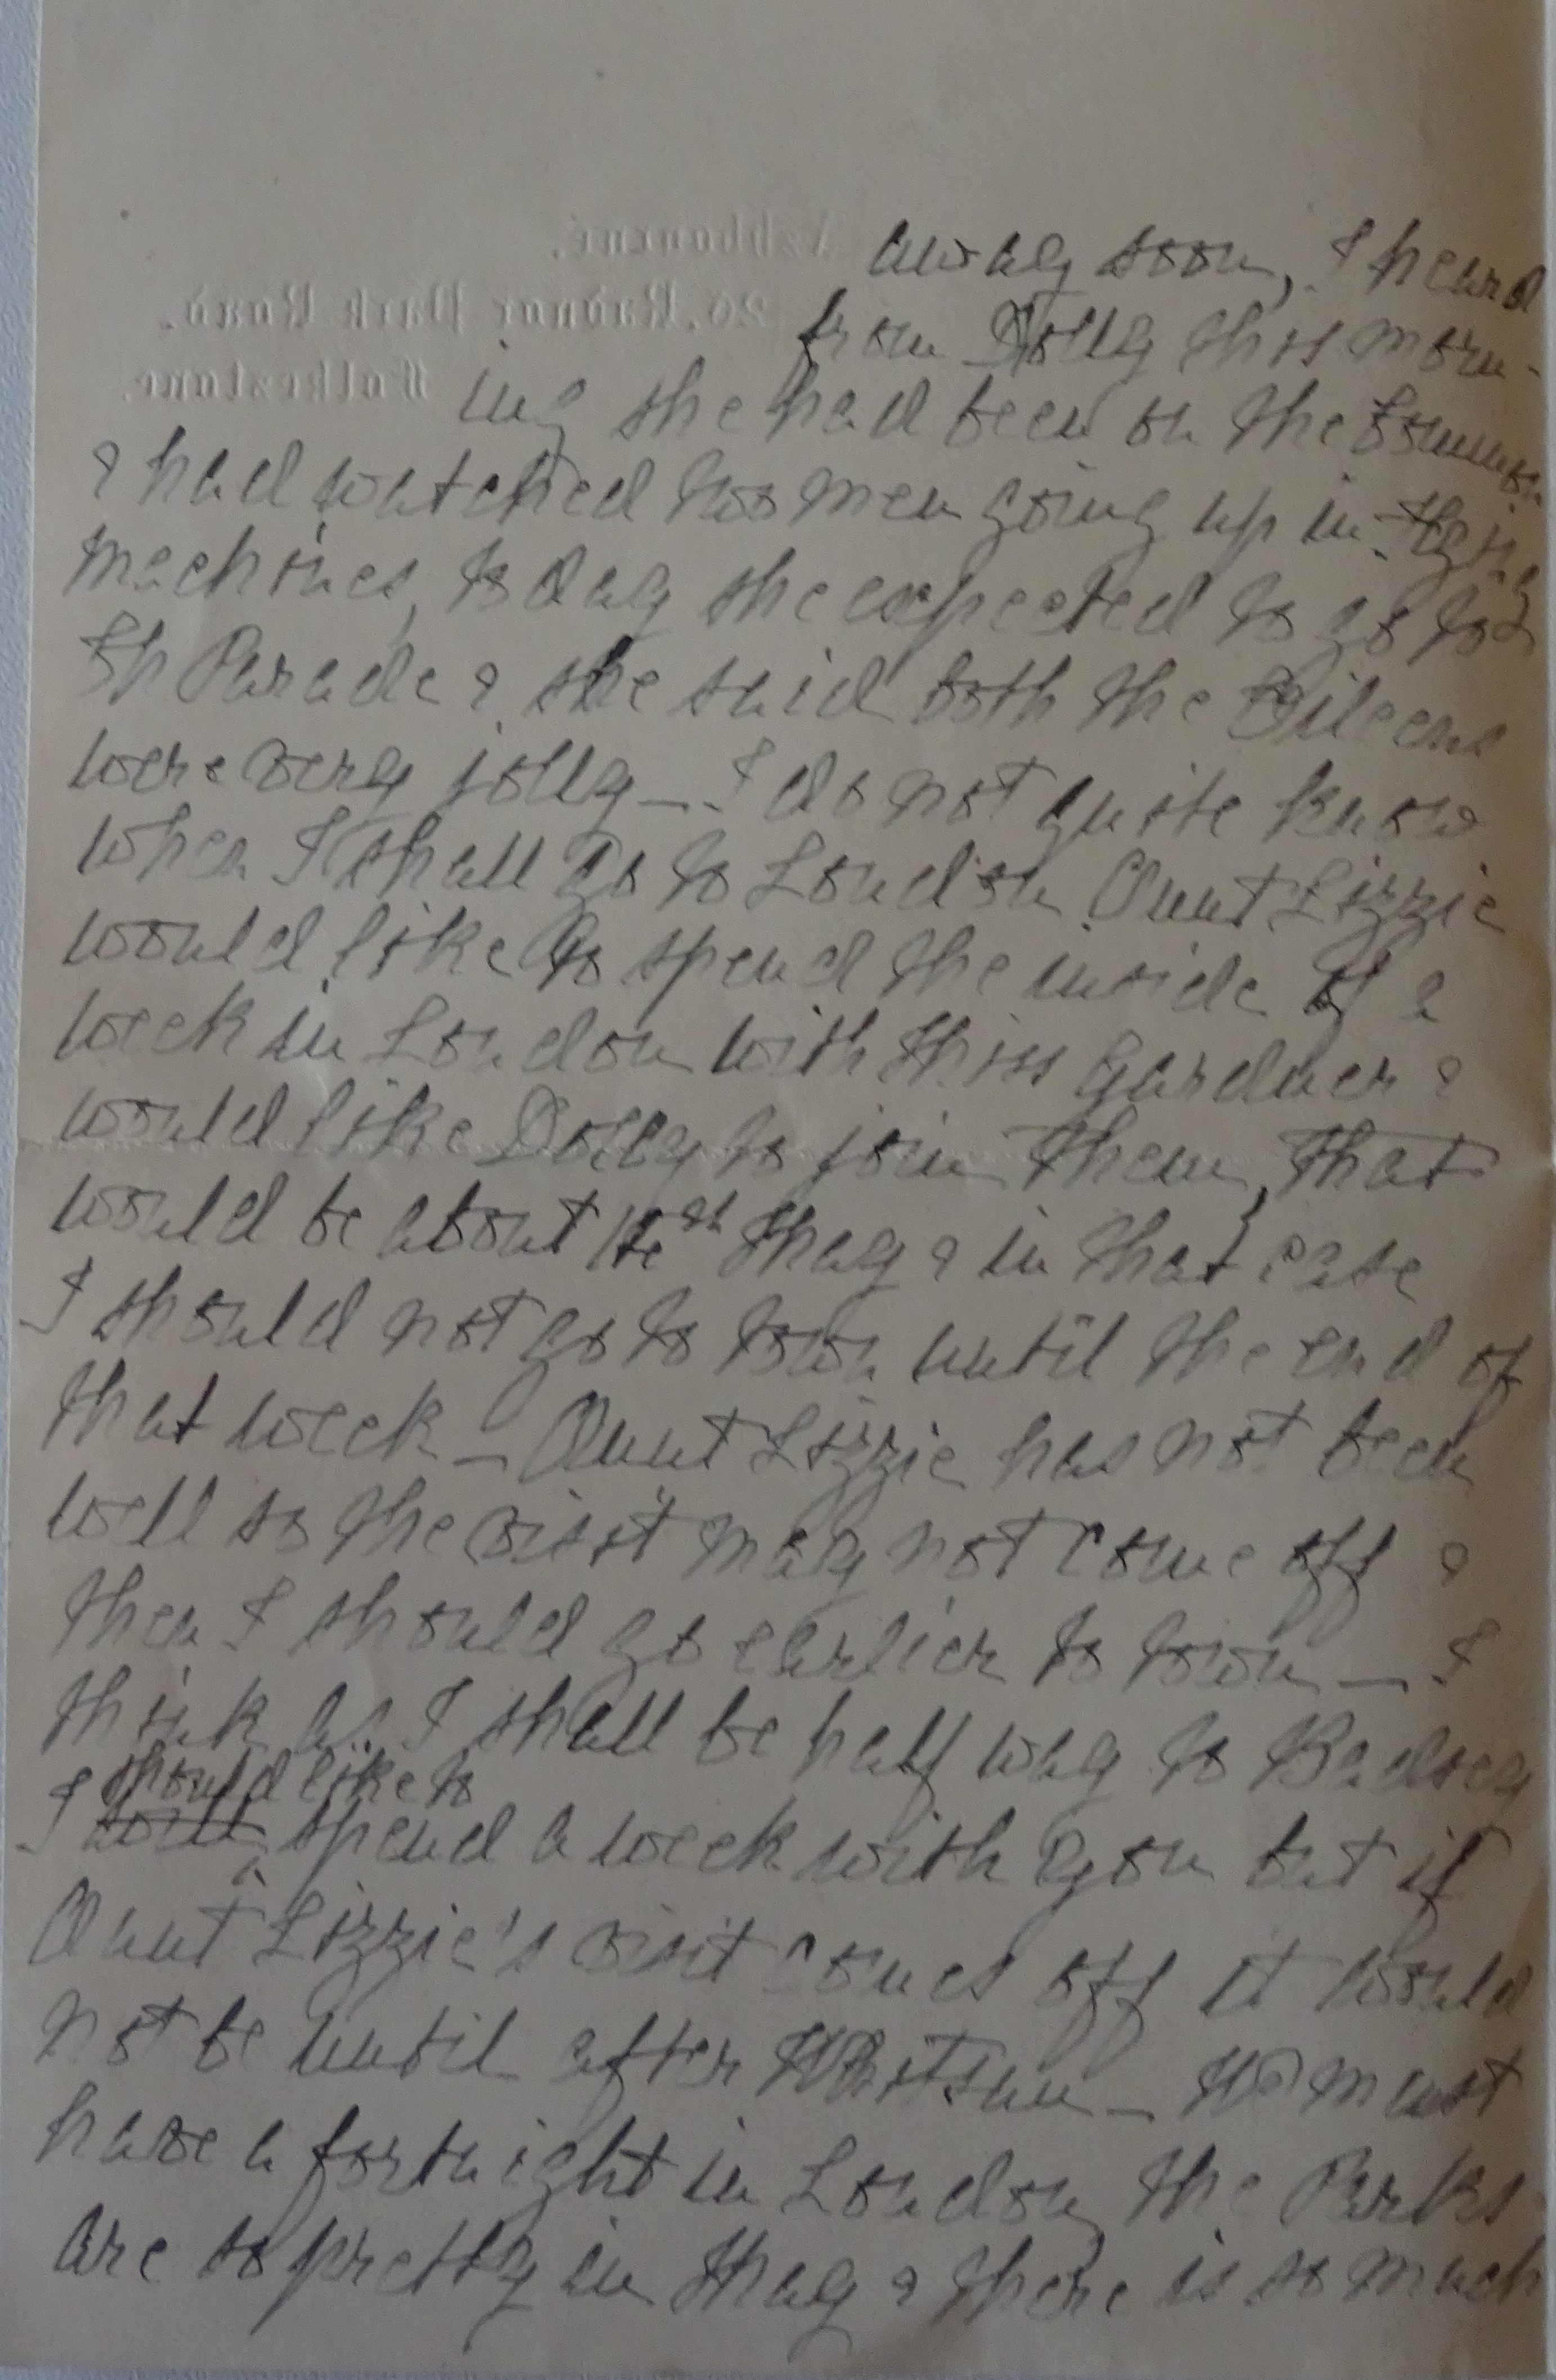 Ashbourne,
26, Radnor Park Road,
Folkestone.
away soon, I heard
from Dolly this morn-
ing she had been on the Common
& had watched two men going up in flying
machines, to day she expected to go to
Ch Parade & she said both the Eileens
were very jolly — I do not quite know
when I shall go to London Aunt Lizzie
would like to spend the inside of a
week in London with Miss Gardner &
would like Dolly to join them, that
would be about May & in that case
I should not go to town until the end of
that week — Aunt Lizzie has not been
well so the visit may not come off &
then I should go earlier to town — I
think as I shall be half way to Badsey
I will should like to spend a week with you but if
Aunt Lizzie's visit comes off it would
not be until after Whitsun — We must
have a fortnight in London, the Parks
are so pretty in May & there is so much